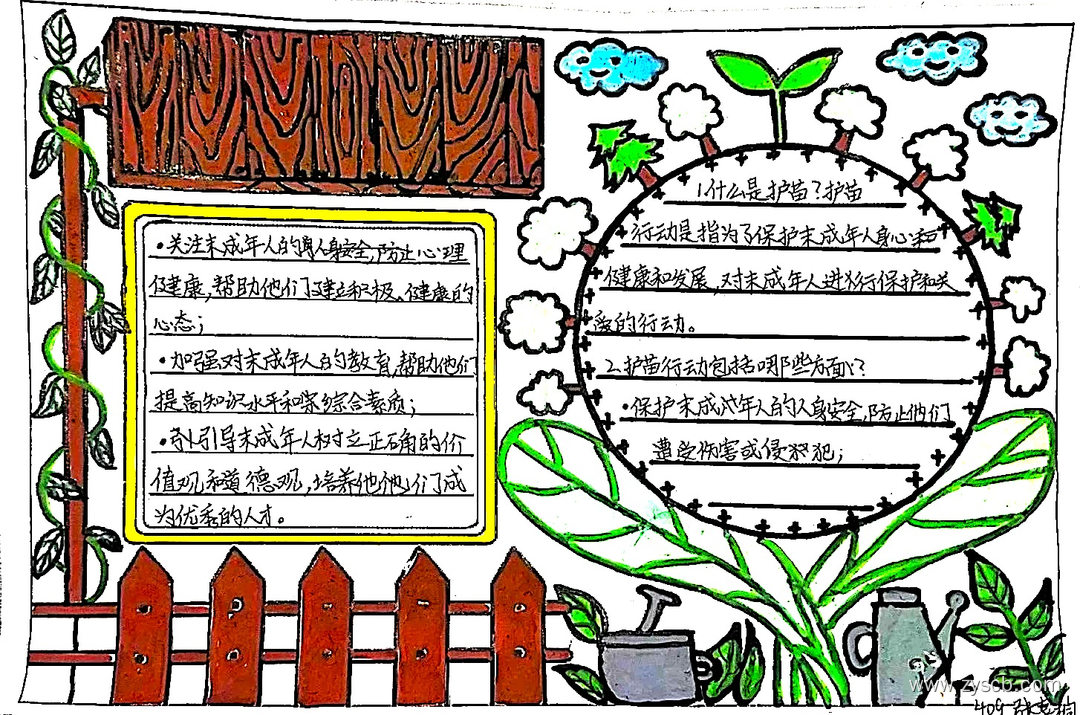 1.什么是护苗？护苗
行动是指为了保护未成年人身心和
健康和发展，对未成年人进行保护和关
爱的行动。
2.护苗行动包括哪些方面？
·保护未成年人的人身安全，防止他们
遭受伤害或侵犯；
·关注未成年人的身安全，防止心理
健康，帮助他们建立积极、健康的
心态；
·加强对未成年人的教育，帮助他们
提高知识水平和综合素质；
·引导未成年人树立正确的价
值观和道德观，培养他们成
为优秀的人才。
www.zyscb.com
409